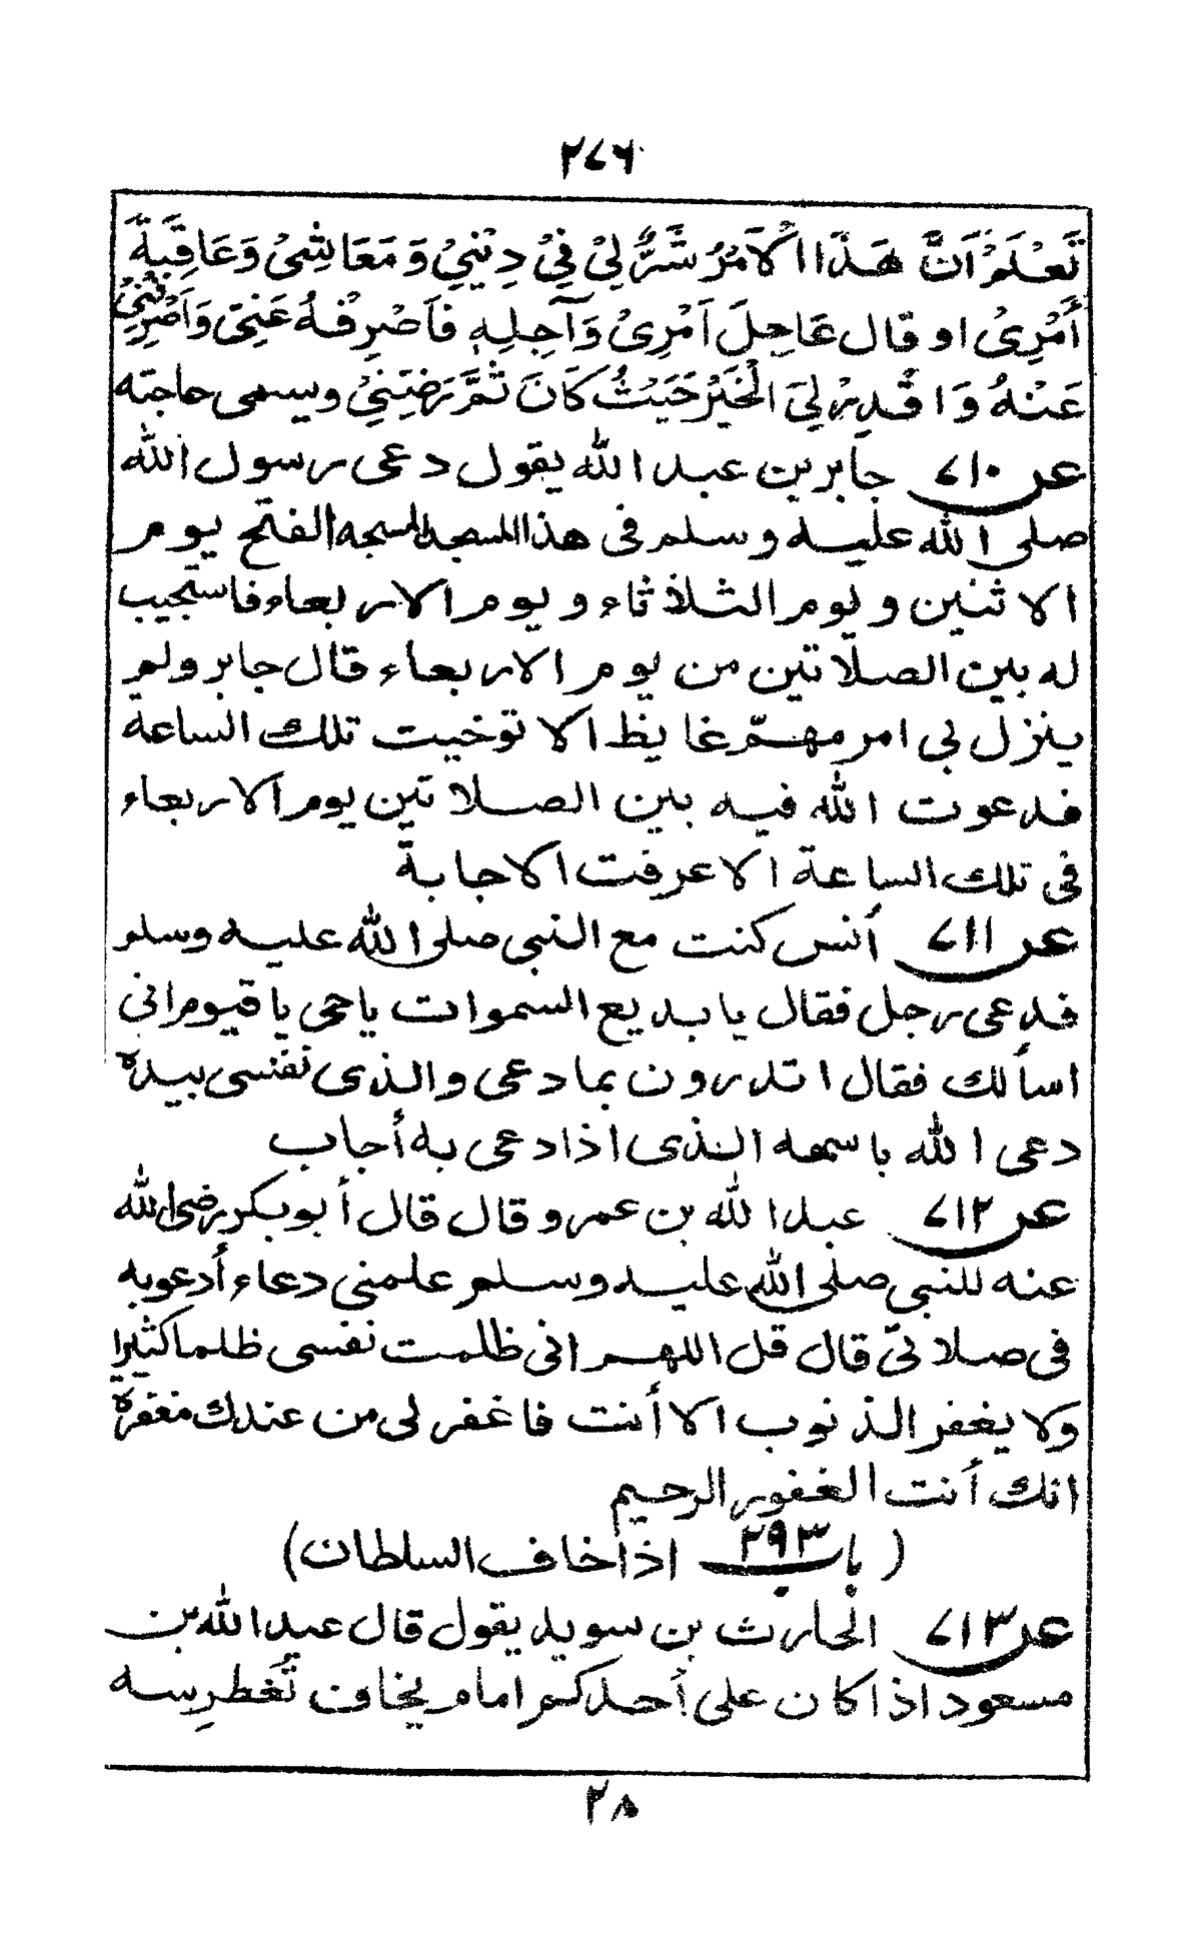 ٢٧٦
تَعْلَمُ اَنَّ هَذَا الْاَمْرُ شَرٌّ لِيْ فِيْ دِيْنِيْ وَمَعَاشِىْ وَعَاقِبَةَ
أَمْرِىْ او قال عَاجِلَ اَمْرِىْ وَآجِلِهِ فَاَصْرِفْهُ عَنِىّ وَاَصْرِفْنِيْ
عَنْهُ وَاقْدِرْ لِىَ الْخَيْرَ حَيْثُ كَانَ ثُمَّ رَضِّنِيْ ويسمى حاجته
عر ٧١٠ جابر بن عبد الله يقول دعى رسول الله
صلى الله عليه وسلم فى هذا المسجد المسجد الفتح يوم
الاثنين ويوم الثلاثاء ويوم الاربعاء فاستجيب
له بين الصلاتين من يوم الاربعاء قال جابر ولم
ينزل بى امر مهمّ غايظ الا توخيت تلك الساعة
فدعوت الله فيه بين الصلاتين يوم الاربعاء
فى تلك الساعة الا عرفت الاجابة
عر ٧١١ أنس كنت مع النبى صلى الله عليه وسلم
فدعى رجل فقال يا بديع السموات ياحى يا قيوم انى
اسألك فقال اتدرون بما دعى والذى نفسى بيده
دعى الله باسمه الذى اذا دعى به أجاب
عر ٧١٢ عبد الله بن عمرو قال قال أبو بكر رضى الله
عنه للنبى صلى الله عليه وسلم علمنى دعاء أدعو به
فى صلاتىّ قال قل اللهم انى ظلمت نفسى ظلما كثيرا
ولا يغفر الذنوب الا أنت فاغفر لى من عندك مغفرة
انك أنت الغفور الرحيم
( باب ٢٩٣ اذا خاف السلطان)
عر ٧١٣ الحارث بن سويد يقول قال عبد الله بن
مسعود اذا كان على أحدكم امام يخاف تَغَطرِسه
٢٨